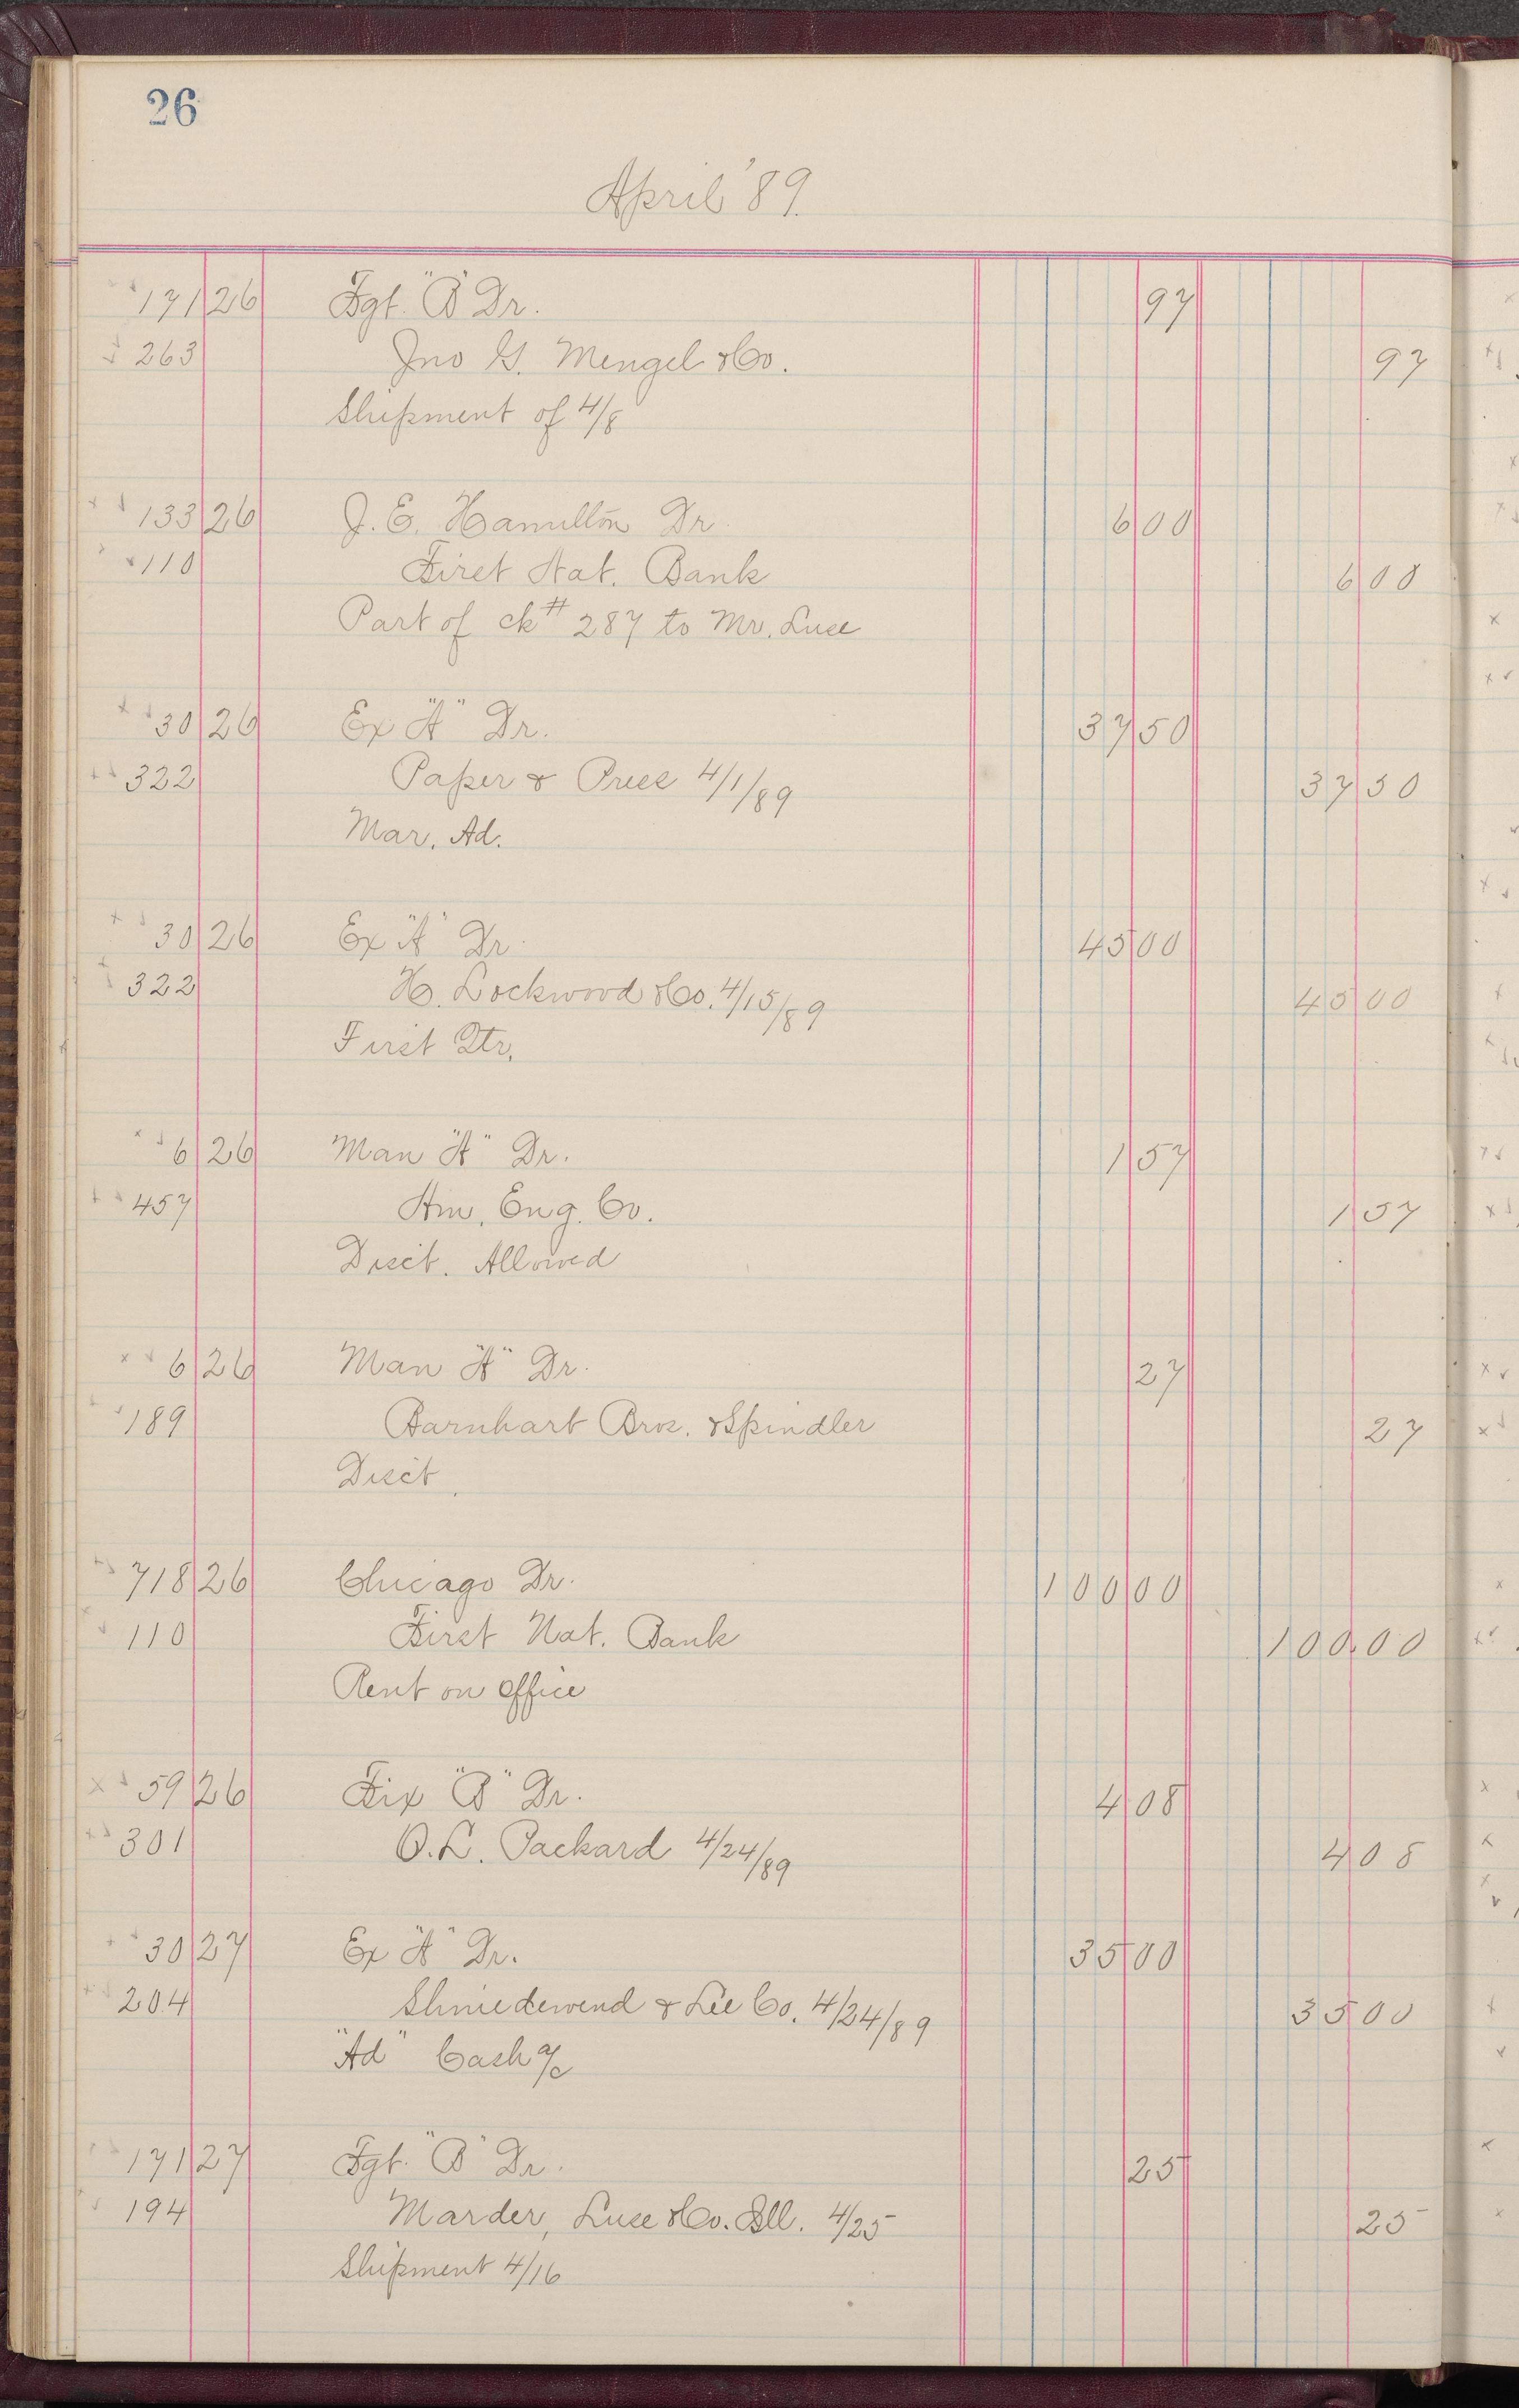 26
April '89.
171 26 Fgt. "B" Dr. 97
263 Jno G. Mengel & Co. 97
Shipment of 4/8
133 26 J. E. Hamilton Dr. 6 00
110 First Nat. Bank 6 00
Part of ck # 287 to Mr. Luse
30 26 Ex "A" Dr. 37 50
322 Paper & Press 4/1/89 37 50
Mar. Ad.
30 26 Ex "A" Dr. 45 00
322 H. Lockwood & Co. 4/15/89 45 00
First Qtr.
6 26 Man "A" Dr. 1 57
457 Am. Eng. Co. 1 57
Disct. Allowed
6 26 Man "A" Dr. 27
189 Barnhart Bros. & Spindler 27
Disct.
718 26 Chicago Dr. 100 00
110 First Nat. Bank 100.00
Rent on office
59 26 Fix "B" Dr. 4 08
301 O. L. Packard 4/24/89 4 08
30 27 Ex "A" Dr. 35 00
204 Shniedewend & Lee Co. 4/24/89 35 00
"Ad" Cash a/c
171 27 Fgt. "B" Dr. 25
194 Marder, Luse & Co. Bll. 4/25 25
Shipment 4/16